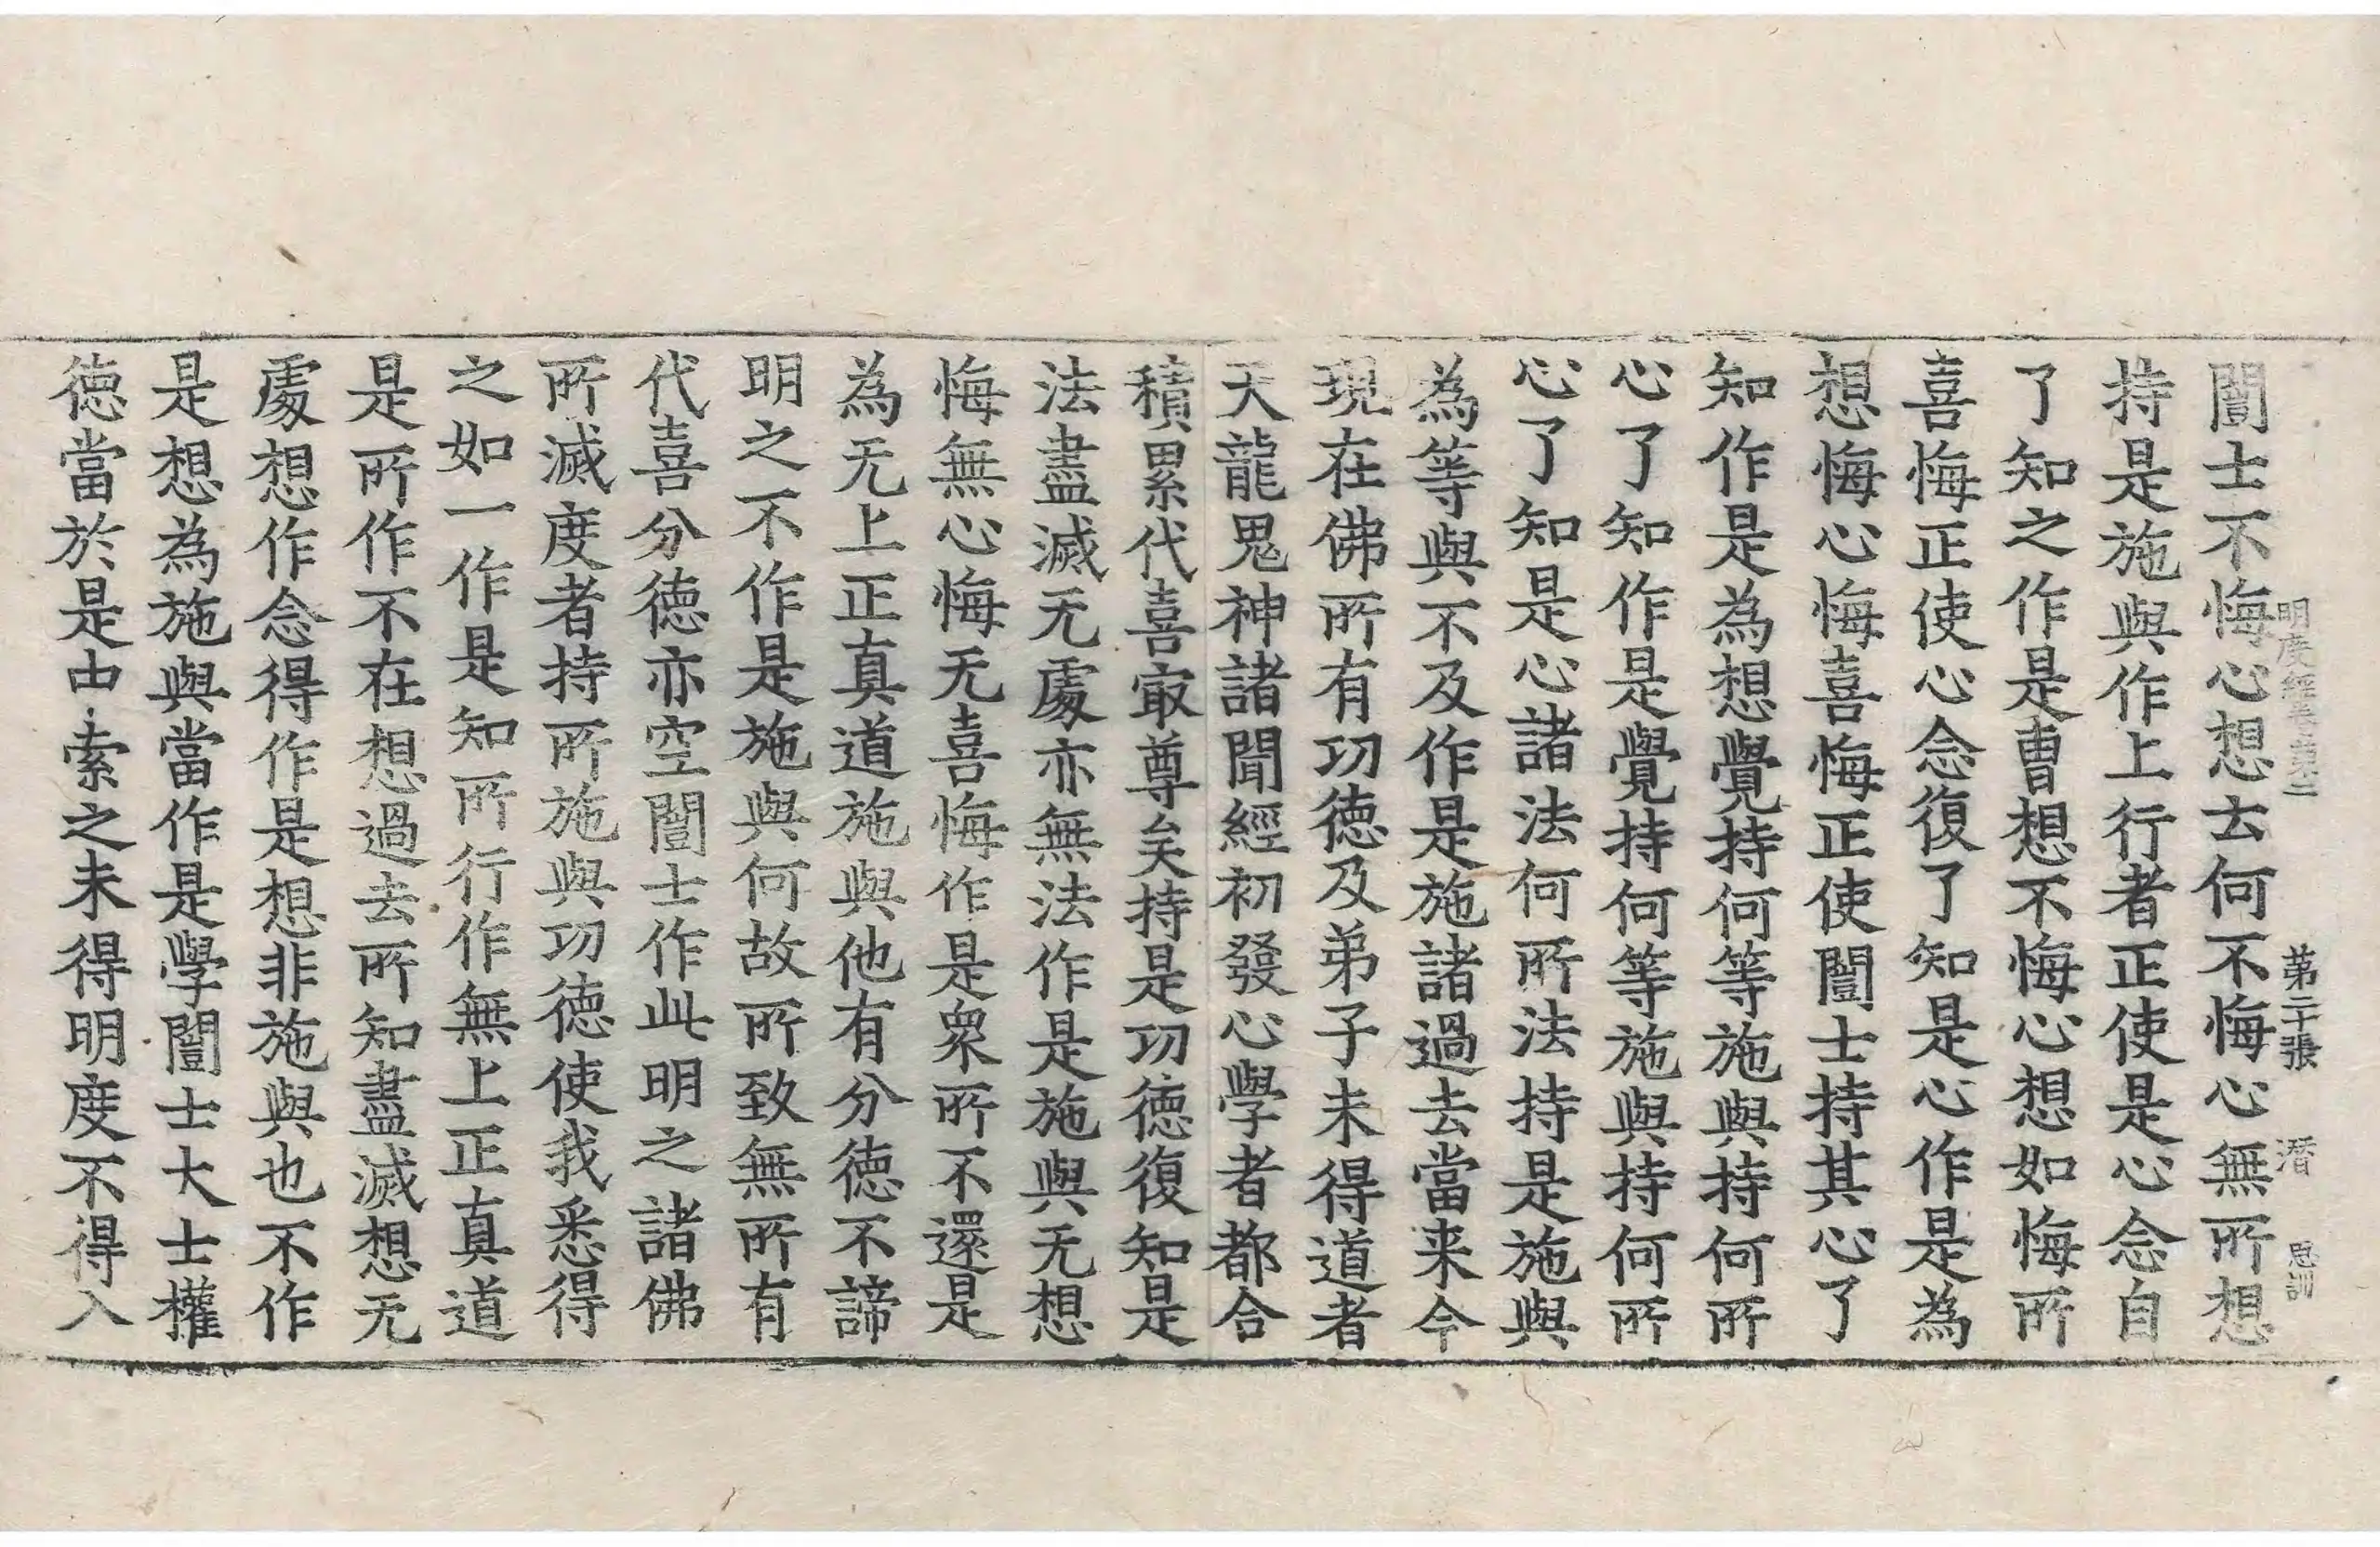 明度經卷第二 第二十張 潛 思訓
闓士不悔心想去何不悔心無所想
持是施與作上行者正使是心念自
了知之作是曹想不悔心想如悔所
喜悔正使心念復了知是心作是為
想悔心悔喜悔正使闓士持其心了
知作是為想覺持何等施與持何所
心了知作是覺持何等施與持何所
心了知是心諸法何所法持是施與
為等與不及作是施諸過去當来今
現在佛所有功德及弟子未得道者
天龍鬼神諸聞經初發心學者都合
積累代喜㝡尊矣持是功德復知是
法盡滅无處亦無法作是施與无想
悔無心悔无喜悔作是衆所不還是
為无上正真道施與他有分德不諦
明之不作是施與何故所致無所有
代喜分德亦空闓士作此明之諸佛
所滅度者持所施與功德使我悉得
之如一作是知所行作無上正真道
是所作不在想過去所知盡滅想无
處想作念得作是想非施與也不作
是想為施與當作是學闓士大士權
德當於是中索之未得明度不得入